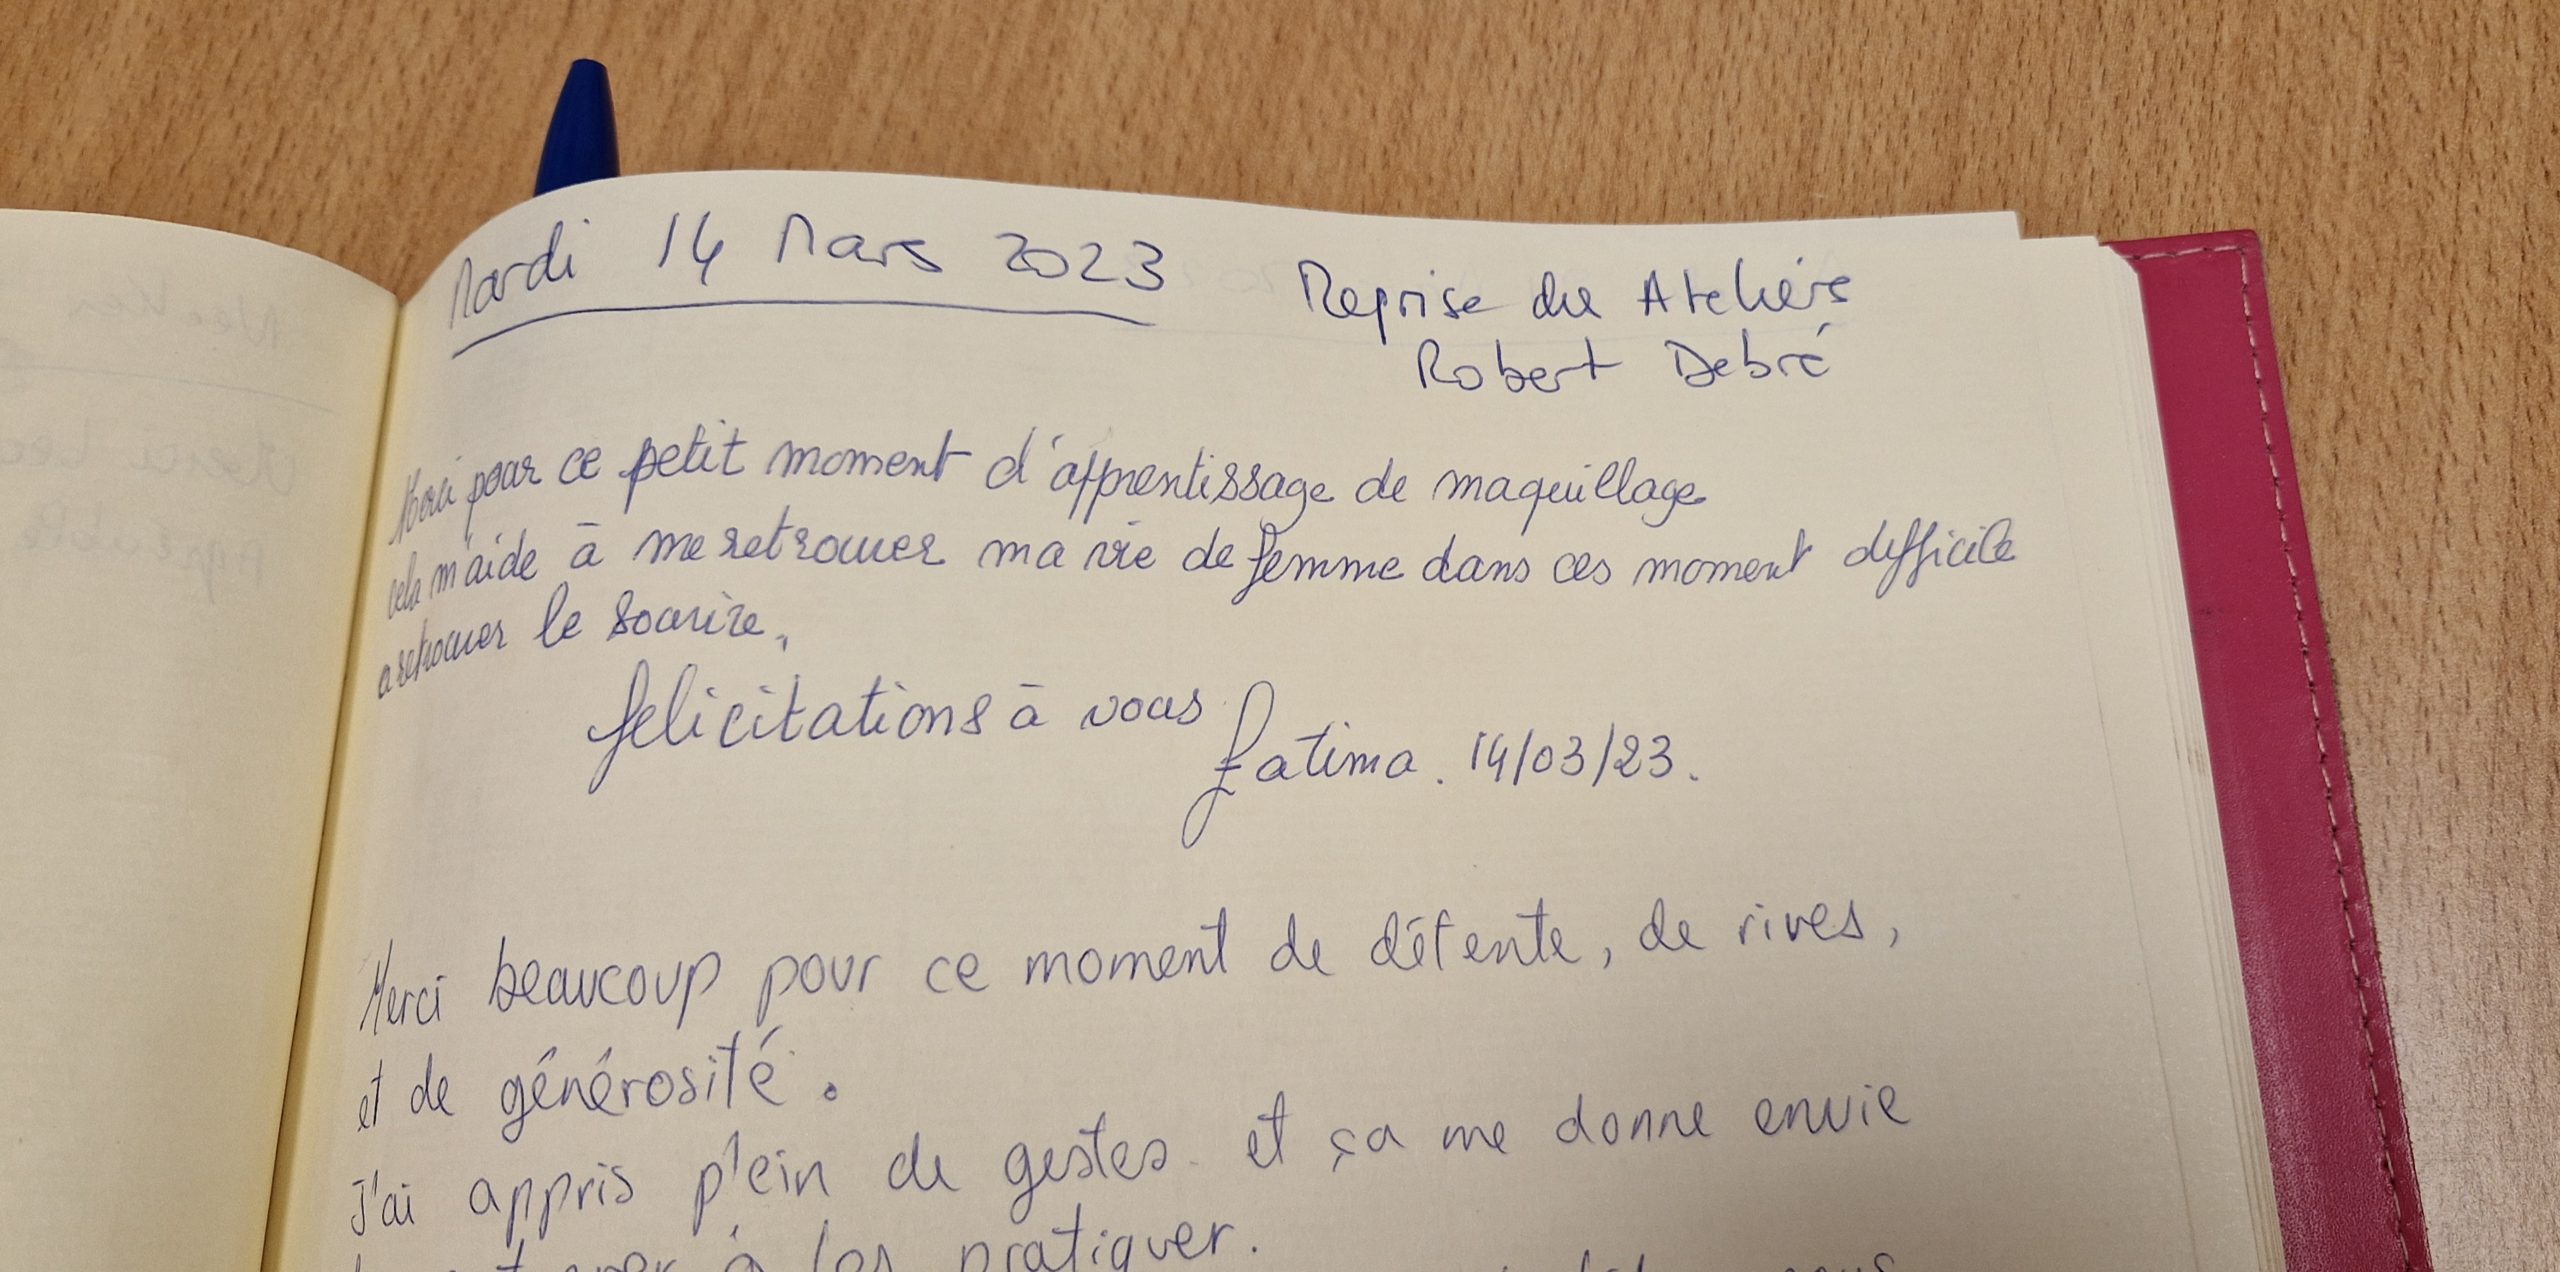 Mardi 14 Mars 2023
Reprise des Ateliers
Robert Debré
Merci pour ce petit moment d'apprentissage de maquillage
cela m'aide à me retrouver ma vie de femme dans ces moment difficile
a retrouver le sourire.
felicitations à vous
fatima. 14/03/23.
Merci beaucoup pour ce moment de détente, de rires,
et de générosité.
J'ai appris plein de gestes et ça me donne envie
à les pratiquer.